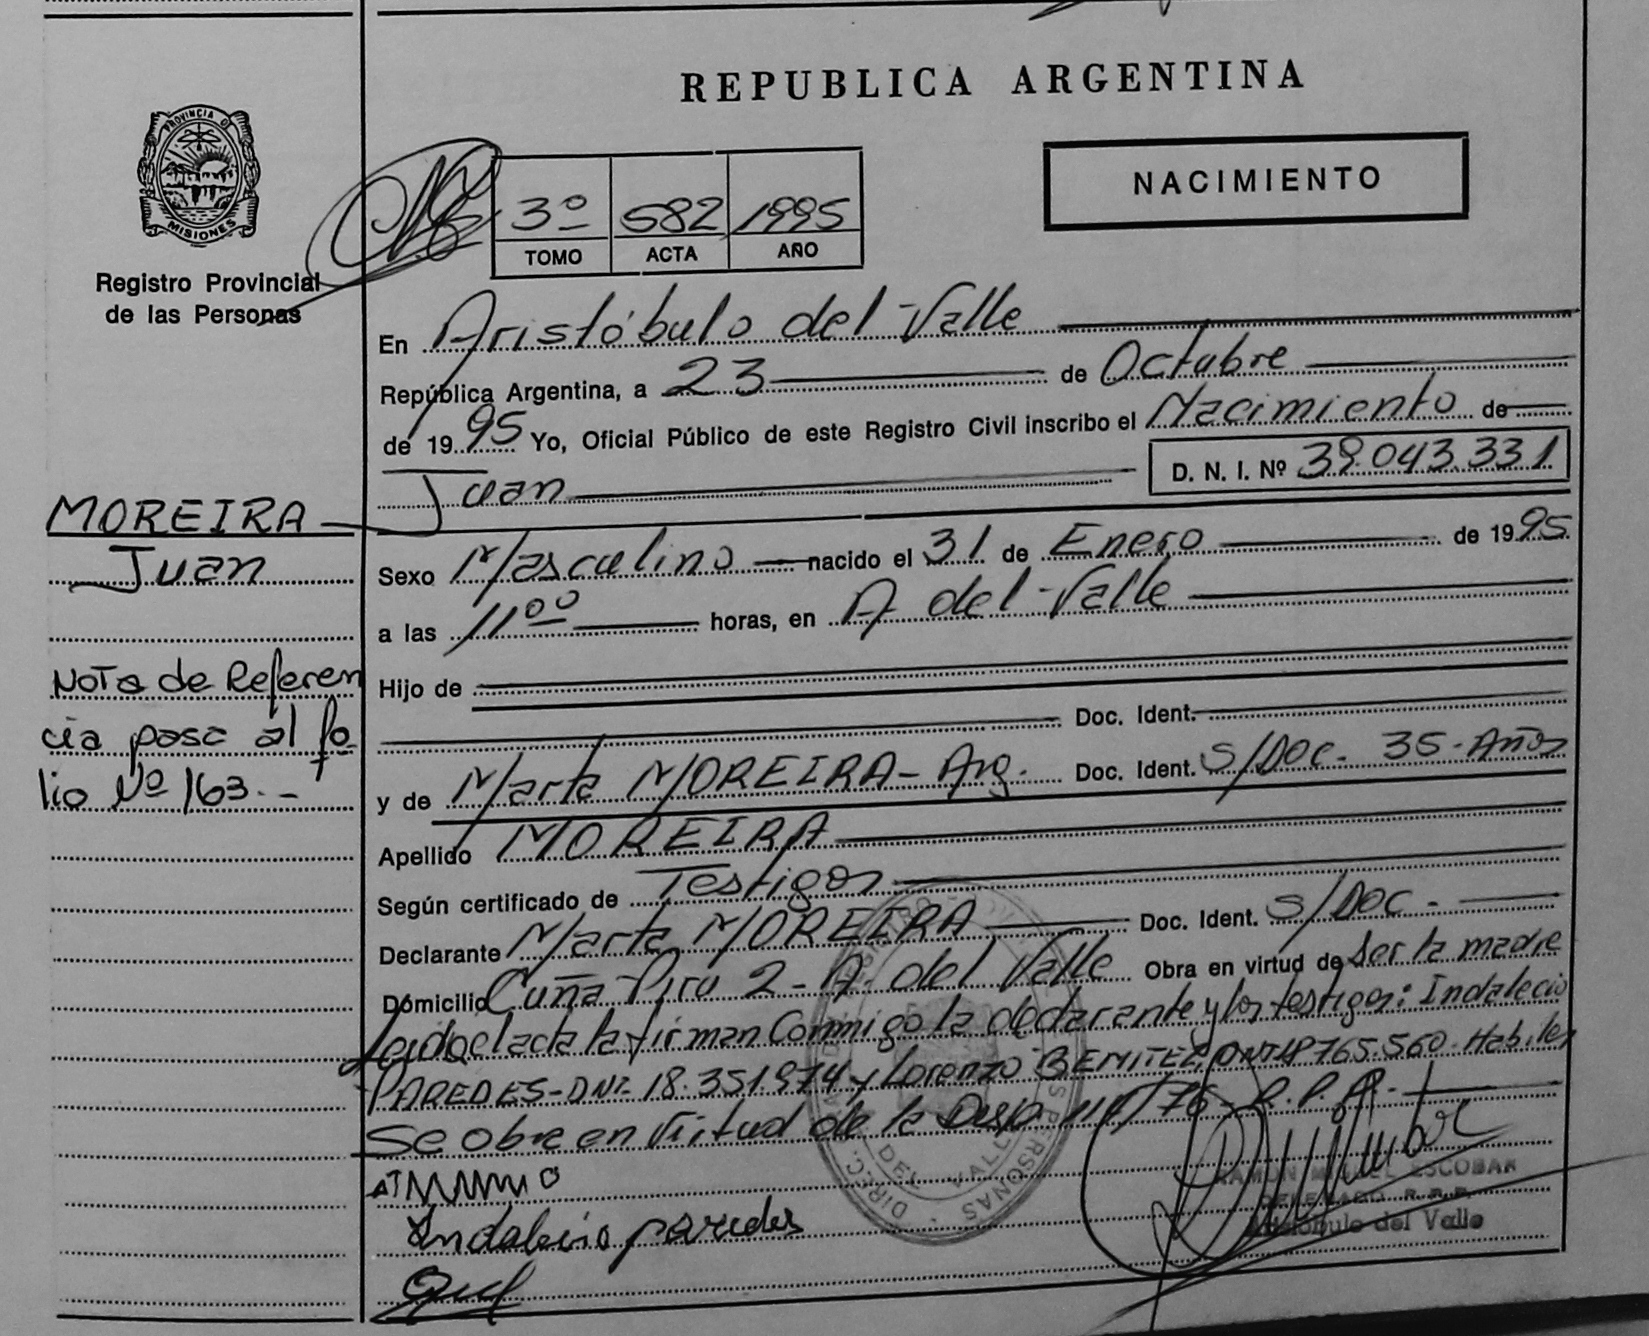 REPUBLICA ARGENTINA
PROVINCIA DE
MISIONES
Registro Provincial
de las Personas
3º 582 1995
TOMO ACTA AÑO
NACIMIENTO
En Aristóbulo del Valle
República Argentina, a 23 de Octubre
de 1995 Yo, Oficial Público de este Registro Civil inscribo el Nacimiento de
Juan D. N. I. Nº 39.043.331
MOREIRA
Juan
Sexo Masculino nacido el 31 de Enero de 1995
a las 11ºº horas, en A del Valle
Nota de Referen
cia pasa al fo
lio Nº 163.-
Hijo de
Doc. Ident.
y de Marta MOREIRA - Arg. Doc. Ident. S/Doc. 35 - Años
Apellido MOREIRA
Según certificado de Testigos
Declarante Marta MOREIRA Doc. Ident. S/Doc.-
Domicilio Cuña Piru 2 - A. del Valle Obra en virtud de ser la madre
Leida el acta la firman Conmigo la declarante y los testigos: Indalecio
PAREDES - DNI 18.351.974 y Lorenzo BENITEZ DNI 18765.560 Habiles
Se obre en virtud de la Disp. /76 - R.P.P.-
Indalecio paredes
RAMON MIGUEL ESCOBAR
DELEGADO R.P.P.
Aristóbulo del Valle